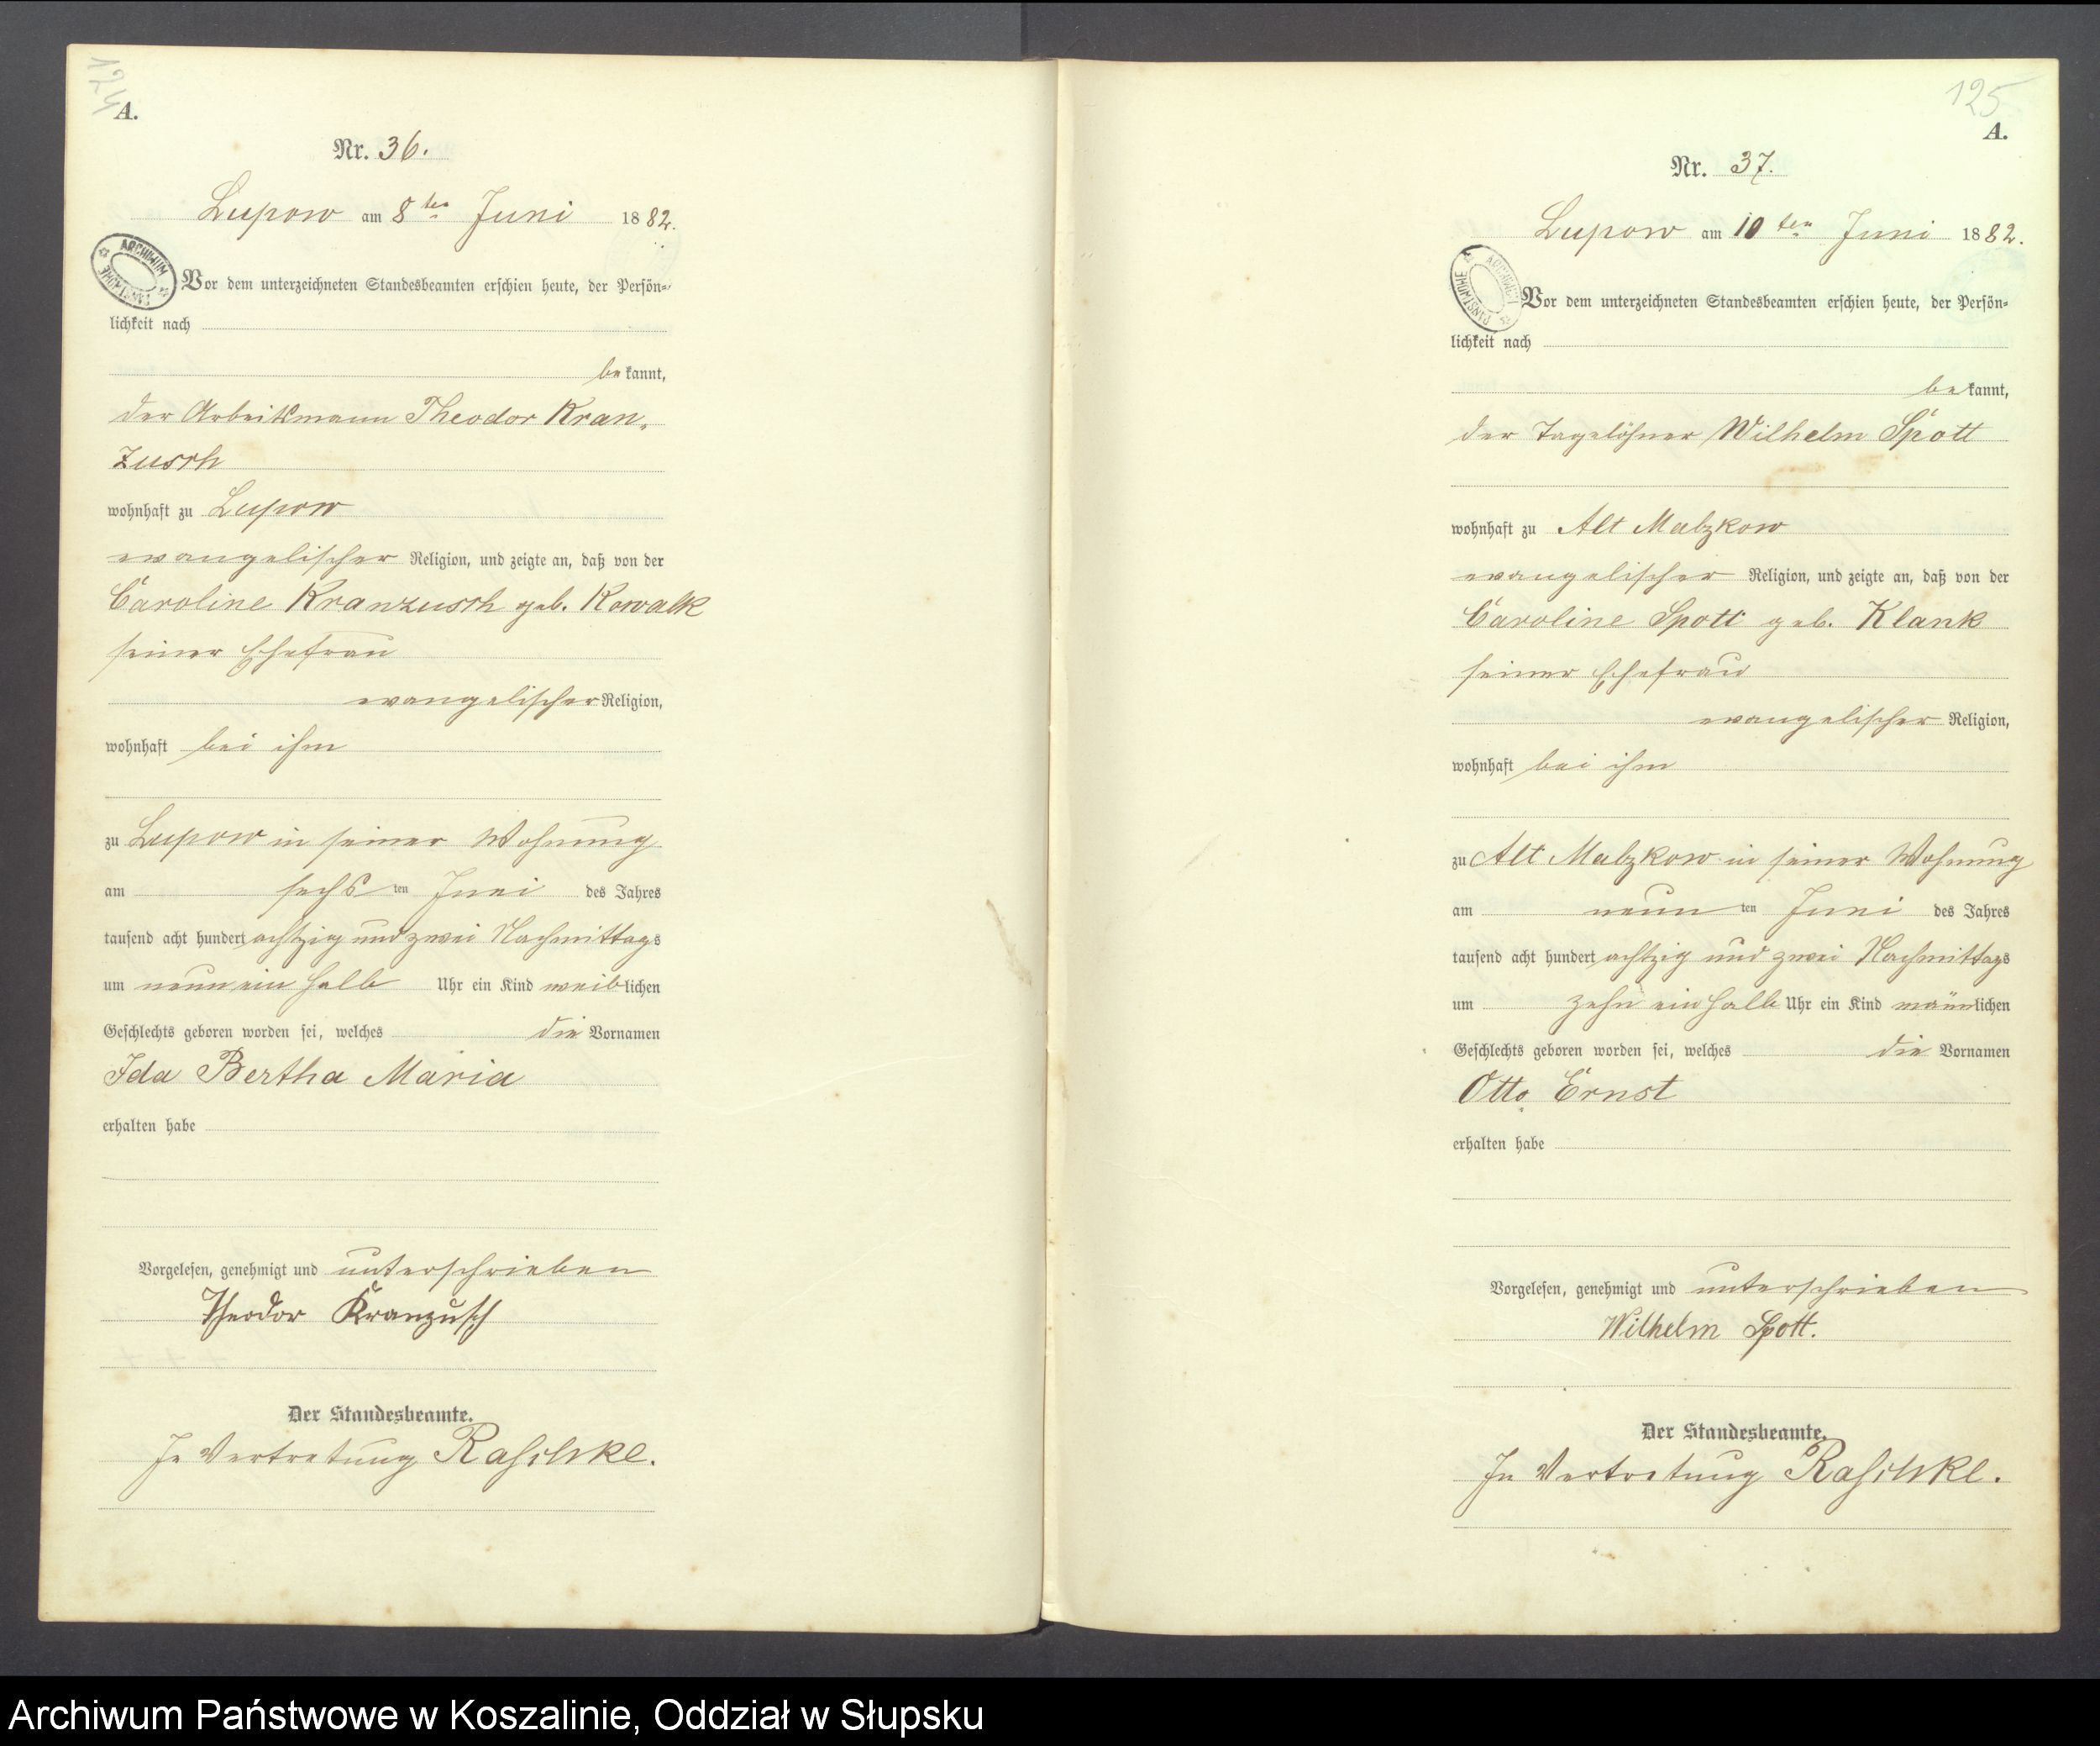 124
A.
Nr. 36.
Lupow am 8ten Juni 1882.
ARCHIWUM PAŃSTWOWE
Vor dem unterzeichneten Standesbeamten erschien heute, der Persön-
lichkeit nach
bekannt,
der Arbeitsmann Theodor Kran-
zusch
wohnhaft zu Lupow
evangelischer Religion, und zeigte an, daß von der
Caroline Kranzusch geb. Kowalk
seiner Ehefrau
evangelischer Religion,
wohnhaft bei ihm
zu Lupow in seiner Wohnung
am sechsten Juni des Jahres
tausend acht hundert achtzig und zwei Nachmittags
um neun ein halb Uhr ein Kind weiblichen
Geschlechts geboren worden sei, welches die Vornamen
Ida Bertha Maria
erhalten habe
Vorgelesen, genehmigt und unterschrieben
Theodor Kranzusch
Der Standesbeamte.
In Vertretung Raschke.
125
A.
Nr. 37.
Lupow am 10ten Juni 1882.
ARCHIWUM PAŃSTWOWE
Vor dem unterzeichneten Standesbeamten erschien heute, der Persön-
lichkeit nach
bekannt,
der Tagelöhner Wilhelm Spott
wohnhaft zu Alt Malzkow
evangelischer Religion, und zeigte an, daß von der
Caroline Spott geb. Klank
seiner Ehefrau
evangelischer Religion,
wohnhaft bei ihm
zu Alt Malzkow in seiner Wohnung
am neunten Juni des Jahres
tausend acht hundert achtzig und zwei Nachmittags
um zehn ein halb Uhr ein Kind männlichen
Geschlechts geboren worden sei, welches die Vornamen
Otto Ernst
erhalten habe
Vorgelesen, genehmigt und unterschrieben
Wilhelm Spott.
Der Standesbeamte.
In Vertretung Raschke.
Archiwum Państwowe w Koszalinie, Oddział w Słupsku